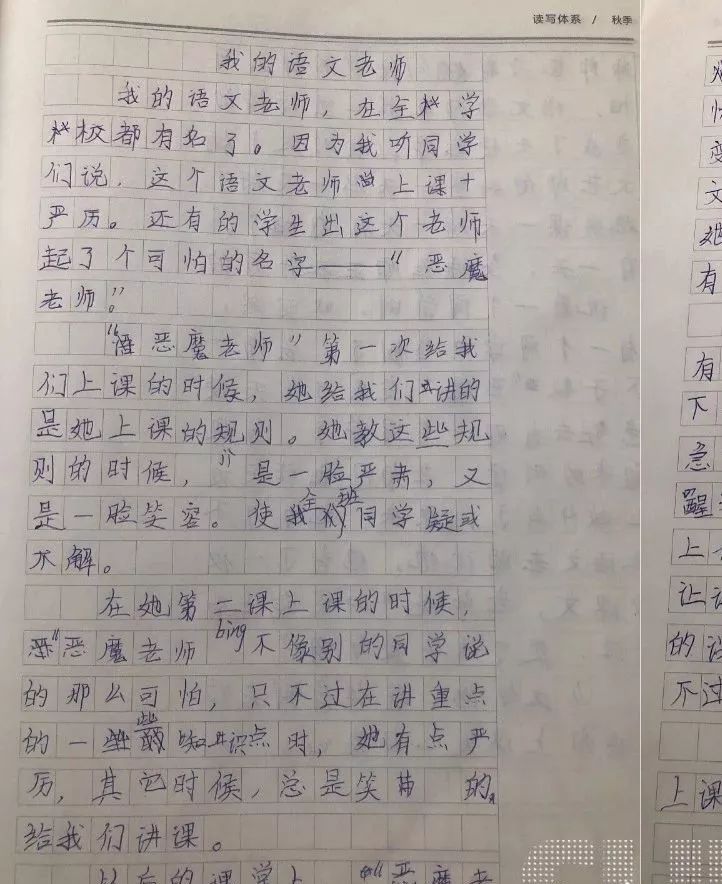 读写体系 / 秋季
我的语文老师
我的语文老师，在全校学
校都有名了。因为我听同学
们说，这个语文老师上课十
严厉。还有的学生出这个老师
起了个可怕的名字——“恶魔
老师”。
“恶魔老师”第一次给我
们上课的时候，她给我们讲的
是她上课的规则。她教这些规
则的时候，是一脸严肃，又
是一脸笑容。使我们全班同学疑或
不解。
在她第二课上课的时候，
“恶魔老师bing不像别的同学说
的那么可怕，只不过在讲重点
的一些知识点时，她有点严
厉，其它时候，总是笑 的，
给我们讲课。
以后的课学上，“恶魔老
文
她
有
有
下
急
醒
上
让
的
不过
上课